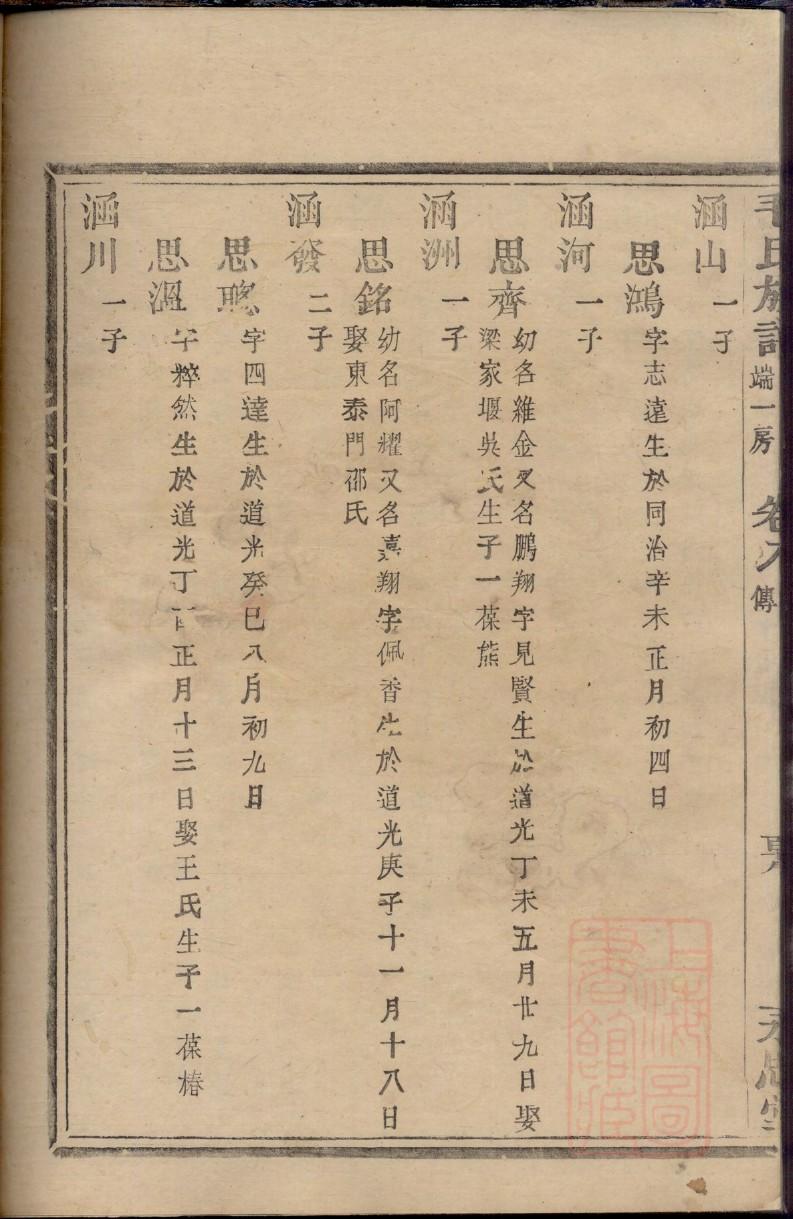 毛氏族譜 端一房 卷八 傳
涵山 一子
思鴻 字志遠生於同治辛未正月初四日
涵河 一子
思齊 幼名雜金又名鵬翔字見賢生於道光丁未五月廿九日娶
梁家堰吳氏生子一葆熊
涵洲 一子
思銘 幼名阿耀又名熹翔字佩香生於道光庚子十一月十八日
娶東泰門邵氏
涵發 二子
思聰 字四達生於道光癸巳八月初九日
思溫 字粹然生於道光丁酉正月十三日娶王氏生子一葆椿
涵川 一子
上海圖書館藏